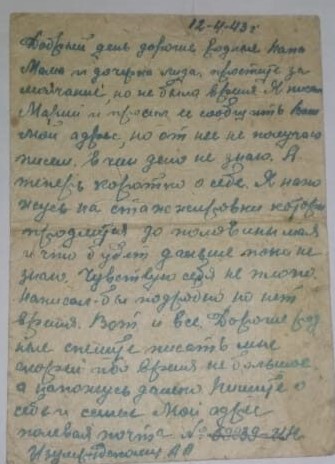 12-4-43 г
Добрый день дорогие родные папа
Мама и дочурка Лида, простите за
молчание но не было время. Я писал
Марии и просил ее сообщить вам
мой адрес, но от нее не получаю
писем. в чем дело не знаю. Я
теперь коротко о себе. Я нахо
жусь на стажировки которая
продлится до половины мая
и что будет дальше пока не
знаю. Чувствую себя не плохо.
написал-бы подробно но нет
время. Вот и все. Дорогие род
ные спешите писать мне
скорей ибо время не большое
а нахожусь далеко Пишите о
себе и семье Мой адрес
полевая почта №